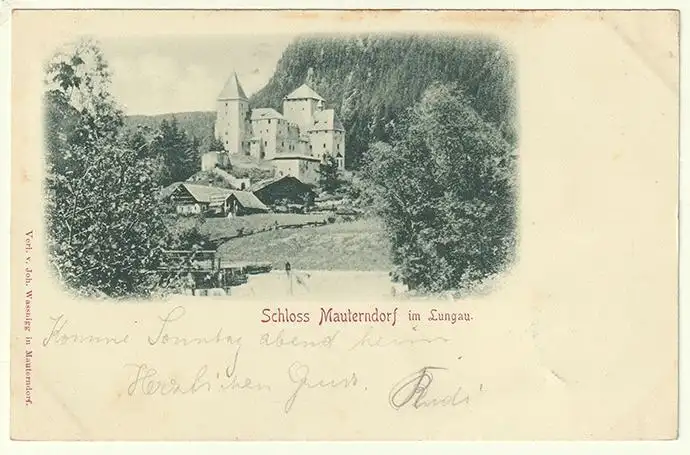 Schloss Mauterndorf im Lungau.
Komme Sonntag abend heim
Herzlichen Gruss. Rudi
Verl. v. Joh. Wassnigg in Mauterndorf.